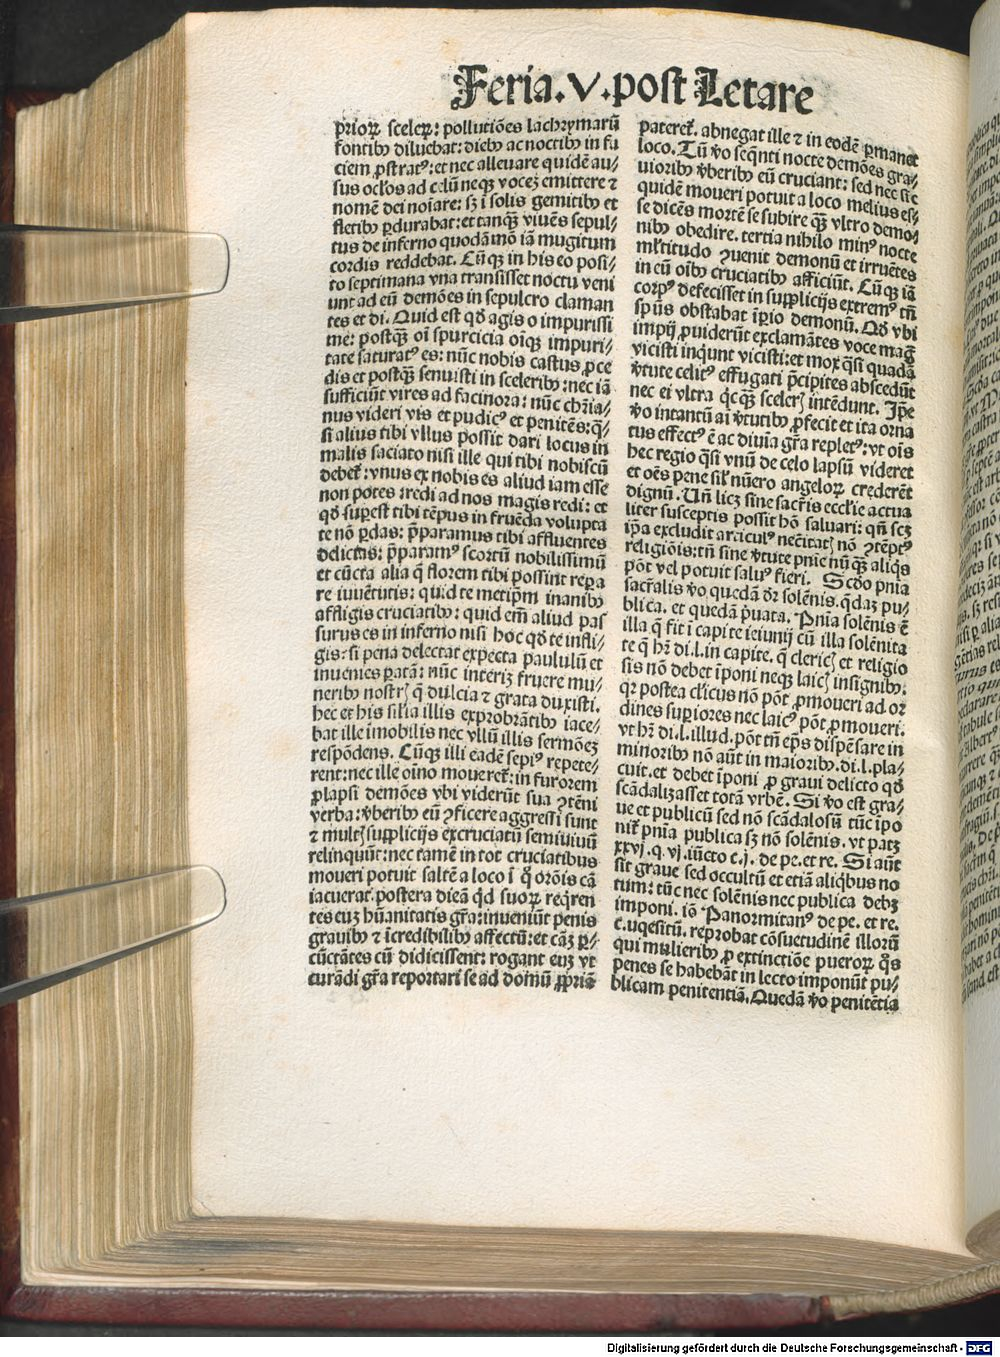 Feria.V.post Letare
priorꝝ scelerꝝ: pollutiões lachrymarũ
fontibꝯ diluebat: diebꝯ ac noctibꝯ in fa
ciem ꝓstratꝰ: et nec alleuare quidẽ au⸗
sus oclo̅s ad celũ neqꝫ voceꝫ emittere ⁊
nomẽ dei noi̅are: sꝫ i̅ solis gemitibꝯ et
fletibꝯ ꝑdurabat: et tanqꝫ̃ viuẽs sepul⸗
tus de inferno quodã mõ iã mugitum
cordis reddebat. Cũqꝫ in his eo posi⸗
to septimana vna transisset noctu veni
unt ad eũ demões in sepulcro claman
tes et di. Quid est qd̃ agis o impurissi
me: postqꝫ̃ oi̅ spurcicia oi̅qꝫ impuri⸗
tate saturatꝰ es: nũc nobis castus ꝓce
dis et postqꝫ̃ senuisti in sceleribꝯ: nec iã
sufficiũt vires ad facinora: nũc chr̃ia⸗
nus videri vis et pudicꝰ et penitẽs: q̃⸗
si alius tibi vllus possit dari locus in
malis saciato nisi ille qui tibi nobiscũ
debet̃: vnus ex nobis es aliud iam esse
non potes: redi ad nos magis redi: et
qd̃ suꝑest tibi tẽpus in fruẽda volupta
te nõ ꝑdas: p̃paramus tibi affluentes
delicias: p̃paramꝰ scortũ nobilissimũ
et cũcta alia q̃ florem tibi possint repa
re iuuẽtutis: quid te metip̃m inanibꝯ
affligis cruciatibꝯ: quid em̃ aliud pas
surus es in inferno nisi hoc qd̃ te infli⸗
gis: si pena delectat expecta paululũ et
inuenies ꝑatã: nũc interiꝫ fruere mu⸗
neribꝯ nostrꝭ q̃ dulcia ⁊ grata duxisti.
hec et his sil̃ia illis exprobrãtibꝯ iace⸗
bat ille i̅mobilis nec vllũ illis sermõeꝫ
respõdens. Cũqꝫ illi eadẽ sepiꝰ repete⸗
rent: nec ille oi̅no moueret̃: in furorem
ꝓlapsi demões vbi viderũt sua ꝯtẽni
verba: v̾beribꝯ eũ ꝯficere aggressi sunt
⁊ multꝭ supplicijs excruciatũ semiuiuũ
relinquũt: nec tamẽ in tot cruciatibus
moueri potuit saltẽ a loco i̅ q̊ orõis cã
iacuerat. postera dieã qd̃ suorꝝ reqr̃en
tes euꝫ hũanitatis gr̃a: inueniũt penis
grauibꝯ ⁊ i̅credibilibꝯ affectũ: et cãꝫ ꝑ⸗
cũctãtes cũ didicissent: rogant euꝫ vt
curãdi gr̃a reportari se ad domũ ꝓpriã
pateret̃. abnegat ille ⁊ in eodẽ ꝑmanet
loco. Tũ v̊o seqñti nocte demões gra⸗
uioribꝯ v̾beribꝯ eũ cruciant: sed nec sic
quidẽ moueri potuit a loco melius es⸗
se dicẽs mortẽ se subire qꝫ̃ vltro demo⸗
nibꝯ obedire. tertia nihilo minꝰ nocte
ml̃titudo ꝯuenit demonũ et irruẽtes
in eũ oi̅bꝯ cruciatibꝯ afficiũt. Cũqꝫ iã
corpꝰ defecisset in supplicijs extremꝰ tñ
spũs obstabat ip̃io demonũ. Qd̃ vbi
impij ꝓuiderũt exclamãtes voce mag̃
vicisti inqũnt vicisti: et mox q̃si quadã
v̾tute celitꝰ effugati p̃cipites abscedũt
nec ei vltra qc̃qꝫ̃ scelerꝭ intẽdunt. Ip̃e
v̊o intantũ ai̅ v̾tutibꝯ ꝓfecit et ita orna
tus effectꝰ ẽ ac diui̅a gr̃a repletꝰ: vt oi̅s
hec regio q̃si vnũ de celo lapsũ videret
et oẽs pene sil̃ nũero angelorꝝ crederẽt
dignũ. Uñ licꝫ sine sacr̃is eccl̃ie actua
liter susceptis possit hõ saluari: qñ scꝫ
ip̃a excludit articulꝰ nec̃itatꝭ nõ ꝯtẽptꝰ
religiõis: tñ sine v̾tute pnĩe nũqꝫ̃ aliq̃s
põt vel potuit saluꝰ fieri. Scdo pnĩa
sacr̃alis v̊o quedã dr̃ solẽnis. q̃daꝫ pu⸗
blica. et quedã p̃uata. Pnĩa solẽnis ẽ
illa q̃ fit i̅ capite ieiunij cũ illa solẽnita
te q̃ hr̃ di.l.in capite. q̃ clericꝭ et religio
sis nõ debet i̅poni neqꝫ laicꝭ insignibꝯ.
qꝛ postea cl̃icus nõ põt ꝓmoueri ad or
dines suꝑiores nec laicꝰ põt ꝓmoueri.
vt hr̃ di.l.illud. põt tñ ep̃s dispẽsare in
minoribꝯ nõ aũt in maioribꝯ. di.l.pla⸗
cuit. et debet i̅poni ꝓ graui delicto qd̃
scãdalizasset totã vrbẽ. Si v̊o est gra⸗
ue et publicũ sed nõ scãdalosũ tũc i̅po
nit̃ pnĩa publica sꝫ nõ solẽnis. vt patꝫ
xxvj.q.vj. iũcto c.j. de pe. et re. Si aũt
sit graue sed occultũ et etiã aliq̃bus no
tum: tũc nec solẽnis nec publica debꝫ
imponi. iõ Panormitanꝰ de pe. et re.
c. uq̃esitũ. reprobat cõsuetudinẽ illorũ
qui mulieribꝯ ꝓ extinctiõe puerorꝝ q̊s
penes se habebãt in lecto imponũt pu⸗
blicam penitentiã. Quedã v̊o penitẽtia
Digitalisierung gefördert durch die Deutsche Forschungsgemeinschaft - DFG